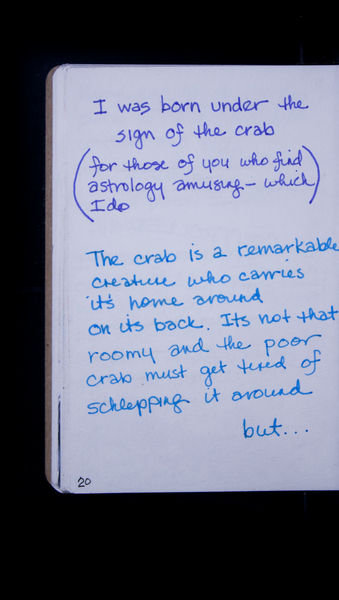 I was born under the
sign of the crab
(for those of you who find
astrology amusing - which
I do)
The crab is a remarkable
creature who carries
it's home around
on its back. Its not that
roomy and the poor
crab must get tired of
schlepping it around
but...
20